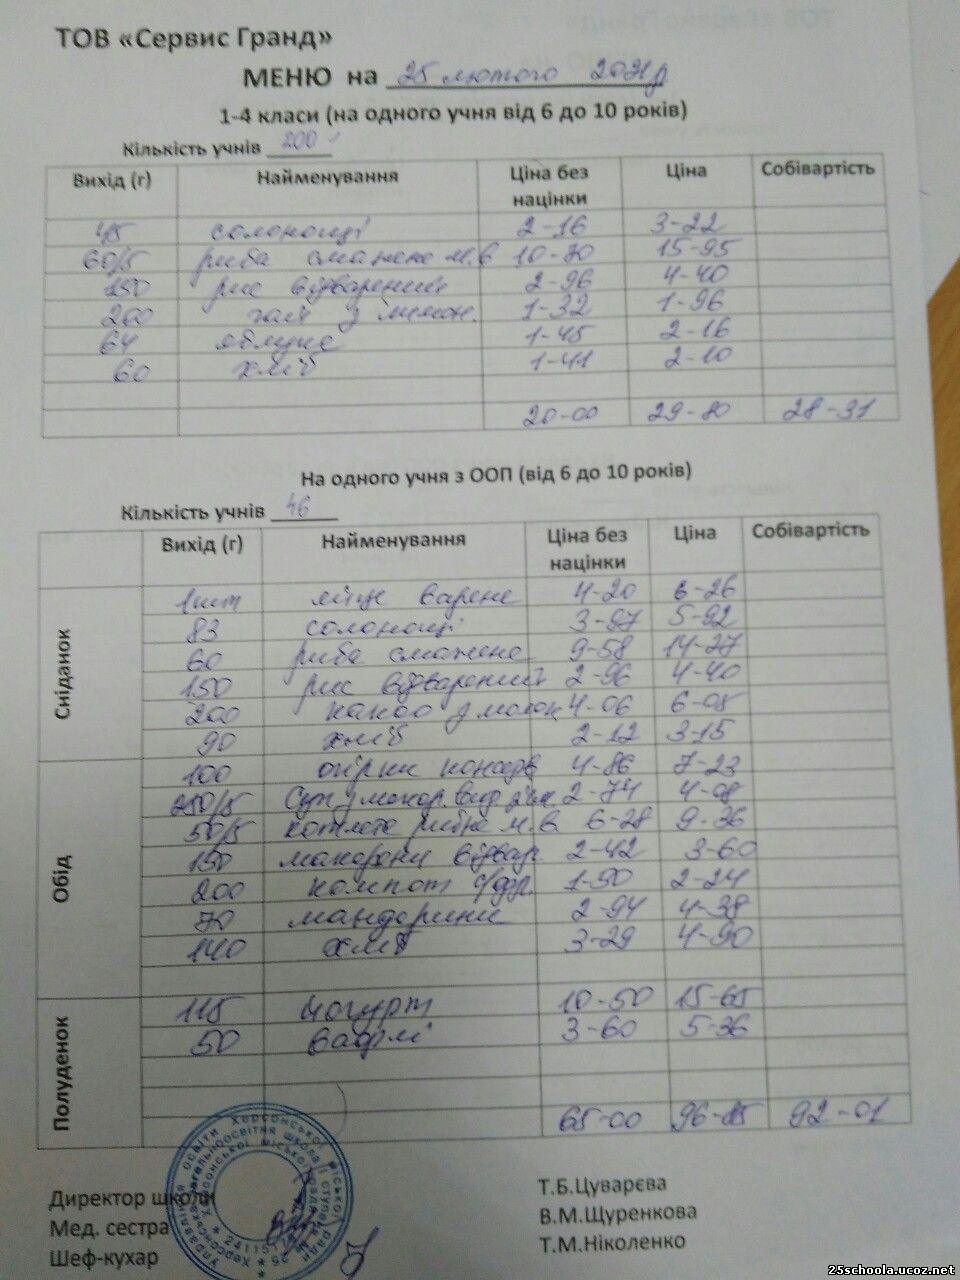 ТОВ «Сервис Гранд»
МЕНЮ на 25 лютого 2021р
1-4 класи (на одного учня від 6 до 10 років)
Кількість учнів 200
Вихід (г) Найменування Ціна без націнки Ціна Собівартість
45 солоношці 2-16 3-22
60/5 риба смажена м.в 10-70 15-95
150 рис відварений 2-96 4-40
200 чай з лимон. 1-32 1-96
64 яблуко 1-45 2-16
60 хліб 1-41 2-10
20-00 29-80 28-31
На одного учня з ООП (від 6 до 10 років)
Кількість учнів 46
Вихід (г) Найменування Ціна без націнки Ціна Собівартість
Сніданок
1шт яйце варене 4-20 6-26
83 солоношці 3-97 5-92
60 риба смажена 9-58 14-27
150 рис відварений 2-96 4-40
200 какао з молок 4-06 6-05
90 хліб 2-12 3-15
Обід
100 огірки консерв 4-86 7-23
250/5 Суп з макар. вид 2-74 4-08
50/5 котлета рибна м.в. 6-28 9-36
150 макарони відвар 2-42 3-60
200 компот с/фр. 1-50 2-24
70 мандарини 2-94 4-38
140 хліб 3-29 4-90
Полуденок
115 йогурт 10-50 15-65
50 вафлі 3-60 5-36
65-00 96-85 92-01
Директор школи Т.Б.Цуварєва
Мед. сестра В.М.Щуренкова
Шеф-кухар Т.М.Ніколенко
25schoola.ucoz.net